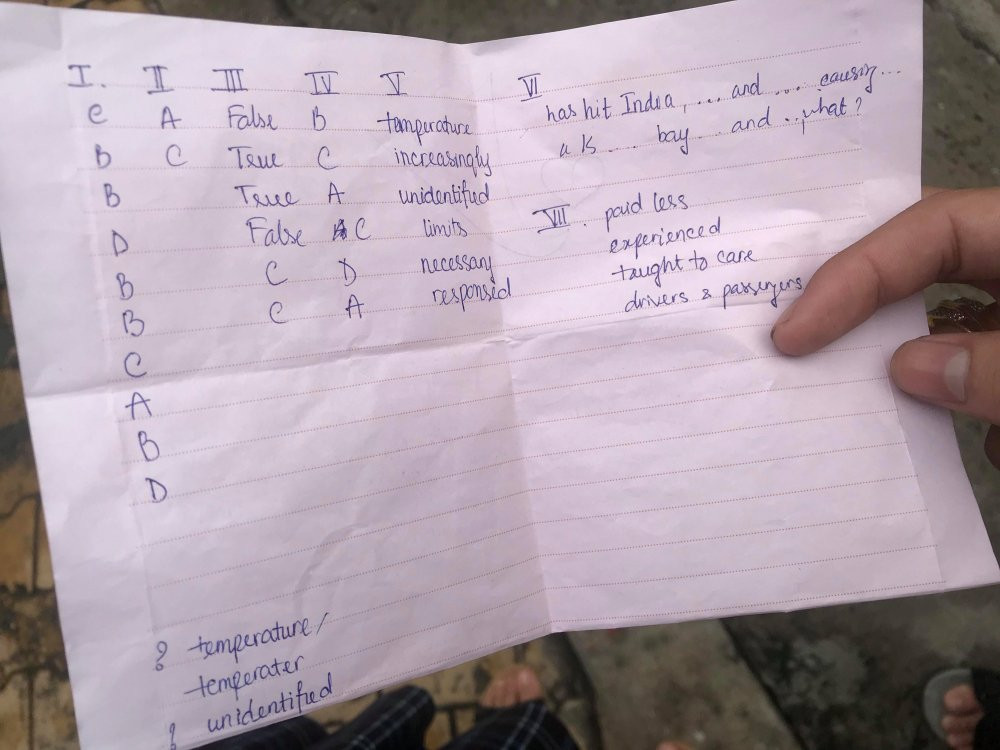 I. II III IV V
C A False B temperature
B C True C increasingly
B True A unidentified
D False C limits
B C D necessary
B C A responsed
C
A
B
D
VI
has hit India, ... and ... causing...
a ... bay ... and ... what?
VII. paid less
experienced
taught to care
drivers & passengers
? temperature/
temperater
? unidentified